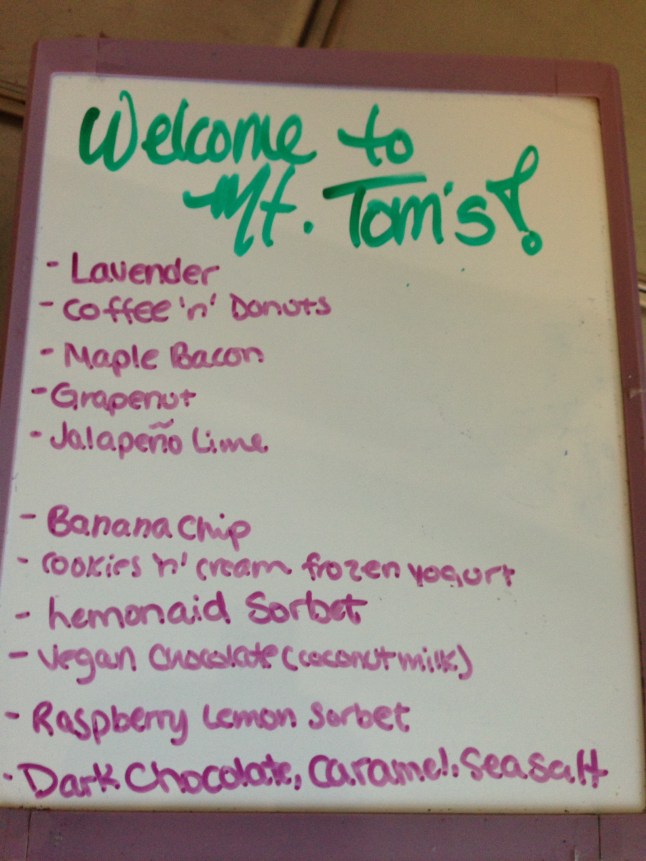 Welcome to
Mt. Tom's!
- Lavender
- Coffee 'n' Donuts
- Maple Bacon
- Grapenut
- Jalapeño Lime
- Banana Chip
- Cookies 'n' Cream frozen yogurt
- Lemonaid Sorbet
- Vegan Chocolate (coconut milk)
- Raspberry Lemon Sorbet
- Dark Chocolate, Caramel, Sea Salt